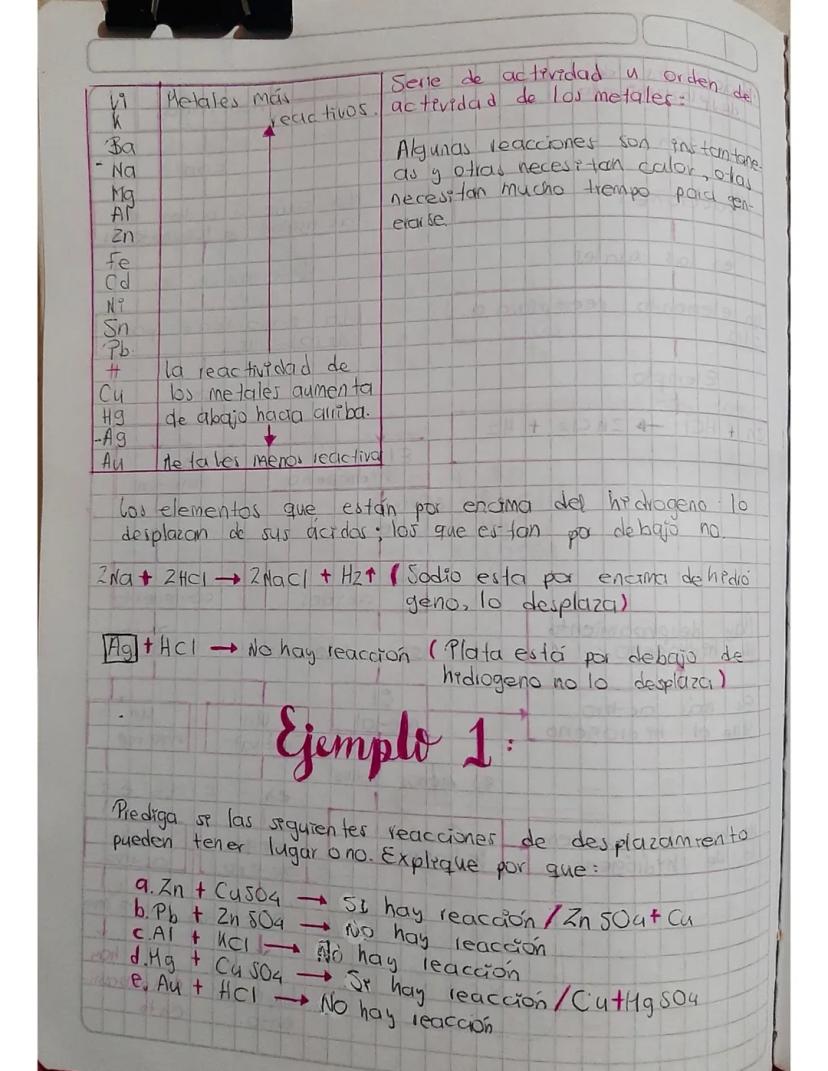 Li
K
Ba
Na
Mg
Al
Zn
Fe
Cd
Ni
Sn
Pb
H
Cu
Hg
-Ag
Au
Metales más
reactivos.
La reactividad de
los metales aumenta
de abajo hacia arriba.
Metales menos reactivo
Serie de actividad u orden de
actividad de los metales:
Algunas reacciones son instantane-
as y otras necesitan calor, otas
necesitan mucho tiempo para gen-
erarse.
Los elementos que están por encima del hidrogeno lo
desplazan de sus ácidos; los que estan por debajo no.
2Na + 2HCl → 2NaCl + H2↑ (Sodio esta por encima de hidro
geno, lo desplaza)
Ag + HCl → No hay reacción (Plata está por debajo de
hidrogeno no lo desplaza)
Ejemplo 1:
Prediga si las siguientes reacciones de desplazamiento
pueden tener lugar o no. Explique por que:
a. Zn + CuSO4 → SI hay reacción / ZnSO4 + Cu
b. Pb + ZnSO4 → No hay reacción
c. Al + KCl → No hay reacción
d. Hg + CuSO4 → Si hay reacción / Cu + HgSO4
e. Au + HCl → No hay reacción